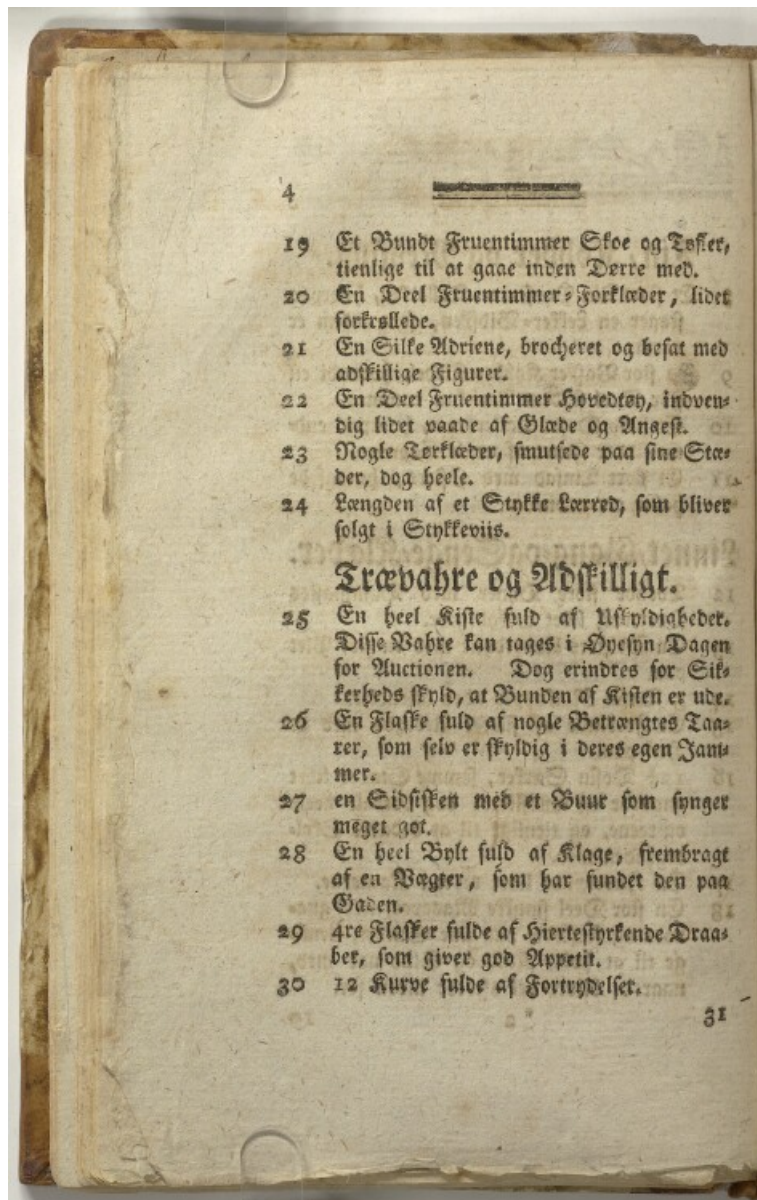 4
19 Et Bundt Fruentimmer Skoe og Tøfler,
tienlige til at gaae inden Dørre med.
20 En Deel Fruentimmer-Forklæder, lidet
forkrøllede.
21 En Silke Adriene, brocheret og besat med
adskillige Figurer.
22 En Deel Fruentimmer Hovedtøy, indven-
dig lidet vaade af Glæde og Angest.
23 Nogle Tørklæder, smutsede paa sine Stæ-
der, dog heele.
24 Længden af et Stykke Lærred, som bliver
solgt i Stykkeviis.
Trævahre og Adskilligt.
25 En heel Kiste fuld af Uskyldigheder.
Disse Vahre kan tages i Øyesyn Dagen
for Auctionen. Dog erindres for Sik-
kerheds skyld, at Bunden af Kisten er ude.
26 En Flaske fuld af nogle Betrængtes Taa-
rer, som selv er skyldig i deres egen Jam-
mer.
27 en Sidsisken med et Buur som synger
meget got.
28 En heel Bylt fuld af Klage, frembragt
af en Vægter, som har fundet den paa
Gaden.
29 4re Flasker fulde af Hiertestyrkende Draa-
ber, som giver god Appetit.
30 12 Kurve fulde af Fortrydelser.
31